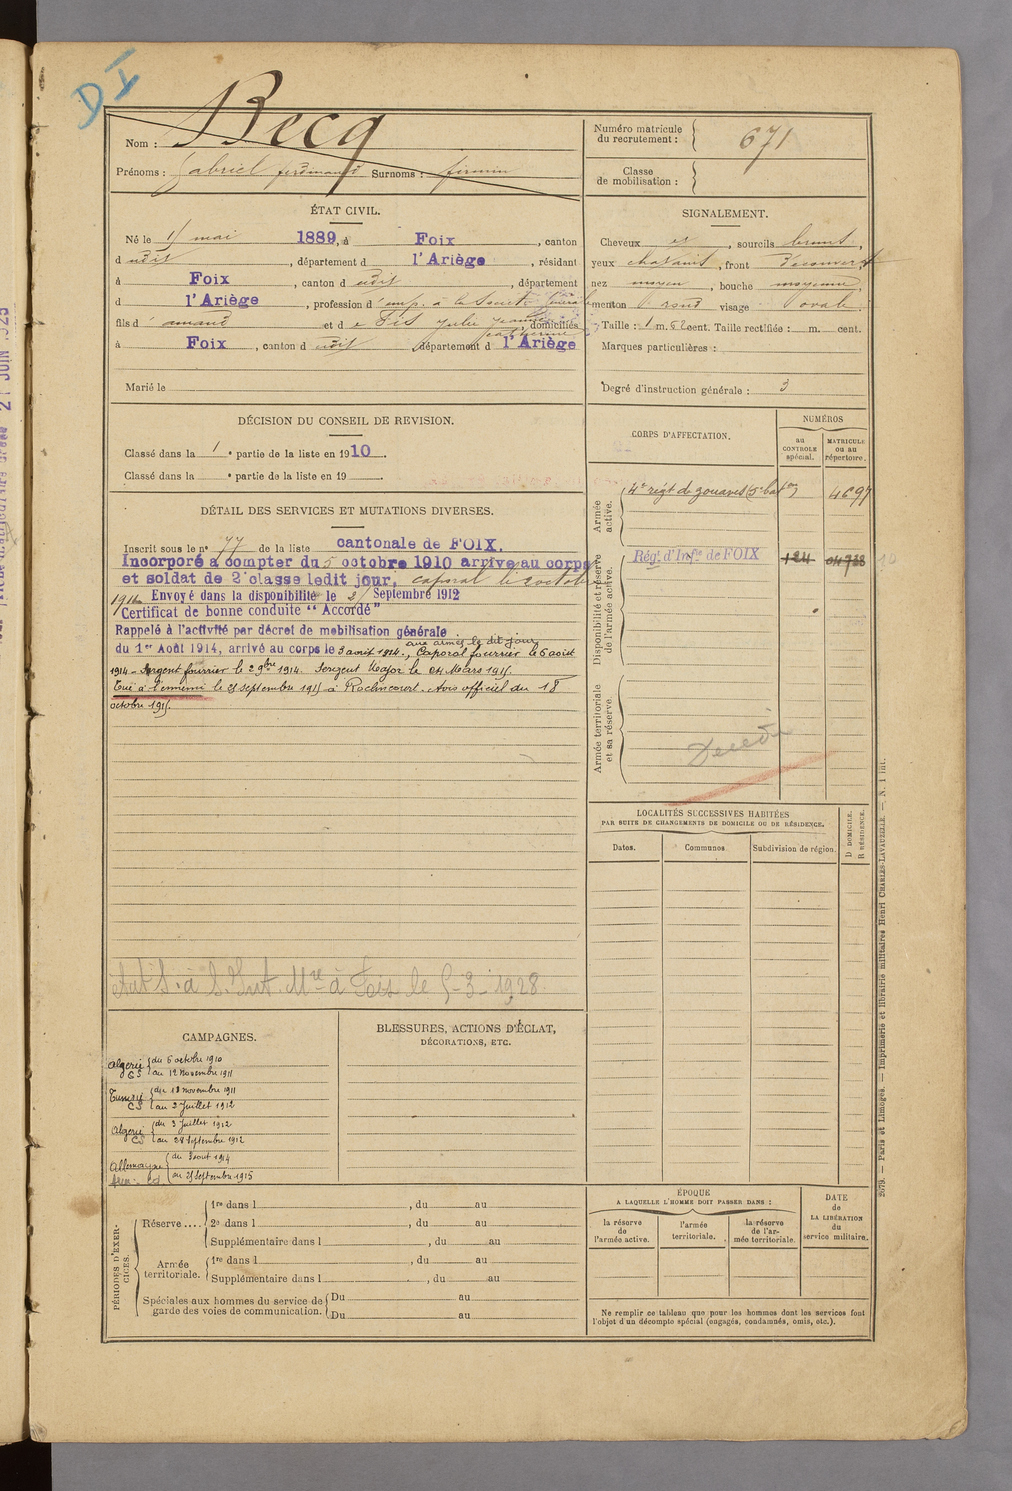 DI
Nom : Becq
Prénoms : Gabriel ferdinand Surnoms : firmin
Numéro matricule du recrutement : 671
Classe de mobilisation :
ÉTAT CIVIL.
Né le 15 mai 1889, à Foix, canton
d udit, département d l'Ariège, résidant
à Foix, canton d udit, département
d l'Ariège, profession d'emp. à la Société Générale
fils d'amand et de Fis Julie Jeanne Catherine domiciliés
à Foix, canton d udit département d l'Ariège
Marié le
SIGNALEMENT.
Cheveux et, sourcils bruns,
yeux chatains, front découvert
nez moyen, bouche moyenne,
menton rond visage ovale.
Taille : 1 m. 62 cent. Taille rectifiée : m. cent.
Marques particulières :
Degré d'instruction générale : 3
DÉCISION DU CONSEIL DE REVISION.
Classé dans la 1e partie de la liste en 1910.
Classé dans la e partie de la liste en 19
CORPS D'AFFECTATION.
NUMÉROS
au CONTROLE spécial.
MATRICULE ou au répertoire.
Armée active.
4e régt de zouaves (5e baton) 4697
Disponibilité et réserve de l'armée active.
Régt d'Infie de FOIX 124 04738
Armée territoriale et sa réserve.
Décédé
DÉTAIL DES SERVICES ET MUTATIONS DIVERSES.
Inscrit sous le no 77 de la liste cantonale de FOIX.
Incorporé à compter du 5 octobre 1910 arrivé au corps
et soldat de 2e classe ledit jour, caporal le 2 octobre
1911. Envoyé dans la disponibilité le 2 Septembre 1912
Certificat de bonne conduite "Accordé"
Rappelé à l'activité par décret de mobilisation générale
du 1er Août 1914, arrivé au corps le 3 août 1914., aux armées le dit jour Caporal fourrier le 6 août
1914 - Sergent fourrier le 2 9bre 1914. Sergent Major le 04 Mars 1915.
Tué à l'ennemi le 25 septembre 1915 à Roclincourt. Avis officiel du 18
octobre 1915.
à Foix le 5-3-1928
LOCALITÉS SUCCESSIVES HABITÉES
PAR SUITE DE CHANGEMENTS DE DOMICILE OU DE RÉSIDENCE.
Dates. Communes Subdivision de région. D DOMICILE. R RÉSIDENCE.
CAMPAGNES.
Algérie CS du 6 octobre 1910 au 12 Novembre 1911
Tunisie CS du 13 novembre 1911 au 2 Juillet 1912
Algérie CS du 3 Juillet 1912 au 28 Septembre 1912
Allemagne du 3 août 1914 au 25 Septembre 1915
BLESSURES, ACTIONS D'ÉCLAT,
DÉCORATIONS, ETC.
PÉRIODES D'EXERCICES.
Réserve .... 1re dans l , du au
2e dans l , du au
Supplémentaire dans l , du au
Armée territoriale. 1re dans l , du au
Supplémentaire dans l , du au
Spéciales aux hommes du service de garde des voies de communication. Du au
Du au
ÉPOQUE
A LAQUELLE L'HOMME DOIT PASSER DANS :
la réserve de l'armée active.
l'armée territoriale.
la réserve de l'armée territoriale.
DATE de LA LIBÉRATION du service militaire.
Ne remplir ce tableau que pour les hommes dont les services font
l'objet d'un décompte spécial (engagés, condamnés, omis, etc.).
2579. — Paris et Limoges. — Imprimerie et librairie militaires Henri CHARLES-LAVAUZELLE. — N. 1 int.